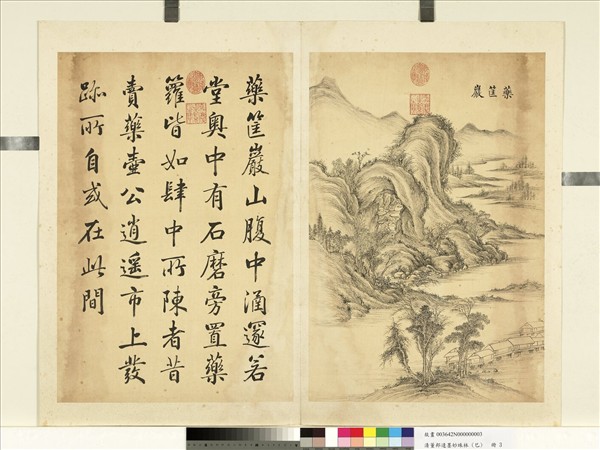 藥筐巖
藥筐巖山腹中涵邃若
堂奧中有石磨旁置藥
籮皆如肆中所陳者昔
賣藥壺公逍遙市上發
跡所自或在此間
故畫 003642N000000003
清董邦達墨妙珠林（巳） 冊 3